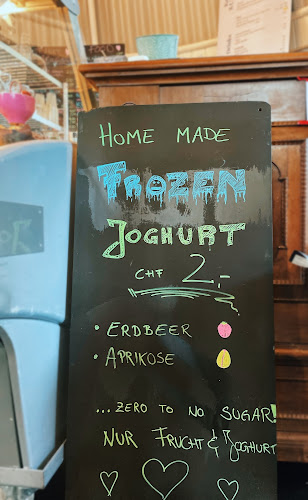 HOME MADE
FROZEN
JOGHURT
CHF 2.-
• ERDBEER
• APRIKOSE
...ZERO TO NO SUGAR!
NUR FRUCHT & JOGHURT